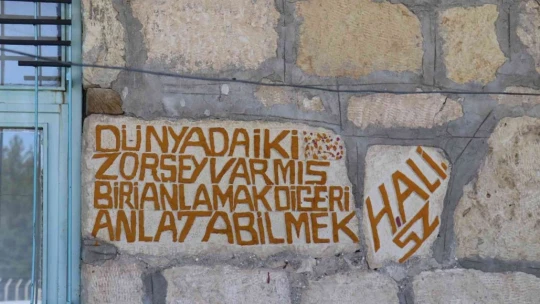 DÜNYADAİKİ
ZORŞEYVARMIŞ
BİRİANLAMAKDİĞERİ
ANLATABİLMEK
H.ALİ.
SZ